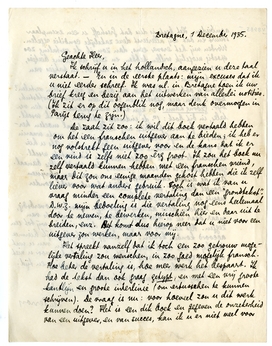 Bretagne, 1 December, 1935.
Geachte Heer,
Ik schrijf u in het hollandsch, aangezien u deze taal
verstaat. — En in de eerste plaats: mijn excuses dat ik
u niet eerder schreef. Ik was nl. in Bretagne toen ik uw
brief kreeg en bezig aan het uitwerken van allerlei notities.
(Ik zit er op dit oogenblik nog, maar denk overmorgen in
Parijs terug te zijn.)
De zaak zit zoo: ik wil dit boek vertaald hebben
om het een franschen uitgever aan te bieden; ik heb er
nog volstrekt geen uitgever voor en de kans dat ik er een
vind is zelfs niet zoo erg groot. Ik zou het zelfs niet
vertaald kunnen hebben met een franschen vriend,
maar bij zou eenige maanden gehad hebben die ik zelf
liever voor wat anders gebruik. Het is wat ik van u
vraag minder een complete vertaling dan een "grondtekst".
D.w.z. mijn bedoeling is de vertaling nog eens heelemaal
door te nemen, te bewerken, misschien hier en daar uit te
breiden, enz. Het komt dus hierop neer dat u niet voor een
uitgever zou werken, maar voor mij.
Het spreekt vanzelf dat ik toch een zoo getrouw moge-
lijke vertaling zou wenschen, en zoo goed mogelijk fransch.
Hoe beter de vertaling is, hoe meer werk het bespaart. Ik
had de tekst dan ook graag getypt, en met een vrij groote
kantlijn, en groote interlinie (om ertusschen te kunnen
schrijven). De vraag is nu: voor hoeveel zou u dat werk
kunnen doen? Het is een dik boek en gegeven de onzekerheid
van een uitgever, en van succes, kan ik er niet veel voor